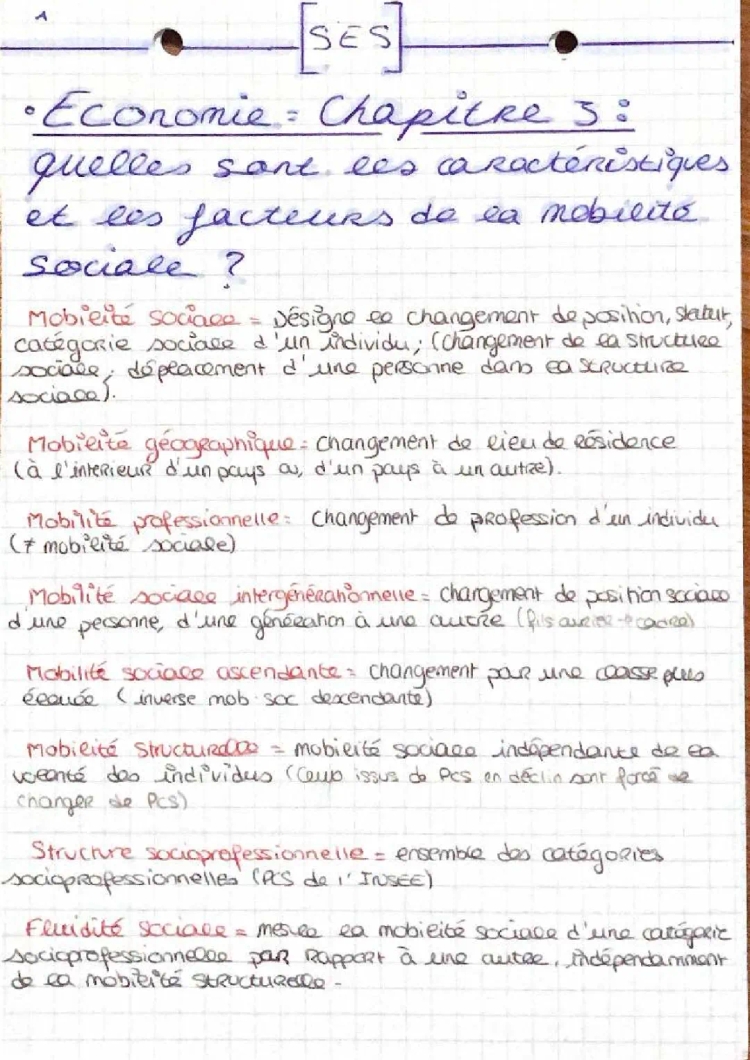 1
[SES]
• Economie = Chapitre 3 :
quelles sont les caractéristiques
et les facteurs de la mobilité
sociale ?
Mobilité sociale = Désigne le changement de position, statut,
catégorie sociale d'un individu, (changement de la structure
sociale, déplacement d'une personne dans la structure
sociale).
Mobilité géographique = changement de lieu de résidence
(à l'intérieur d'un pays ou, d'un pays à un autre).
Mobilité professionnelle = changement de profession d'un individu
(≠ mobilité sociale)
Mobilité sociale intergénérationnelle = changement de position sociale
d'une personne, d'une génération à une autre (fils ouvrier → cadre)
Mobilité sociale ascendante = changement par une classe plus
élevée (inverse mob. soc descendante)
Mobilité structurelle = mobilité sociale indépendante de la
volonté des individus (Ceux issus de Pcs en déclin sont forcé de
changer de Pcs)
Structure socioprofessionnelle = ensemble des catégories
socioprofessionnelles (PCS de l'INSEE)
Fluidité sociale = mesure la mobilité sociale d'une catégorie
socioprofessionnelle par rapport à une autre, indépendamment
de la mobilité structurelle -